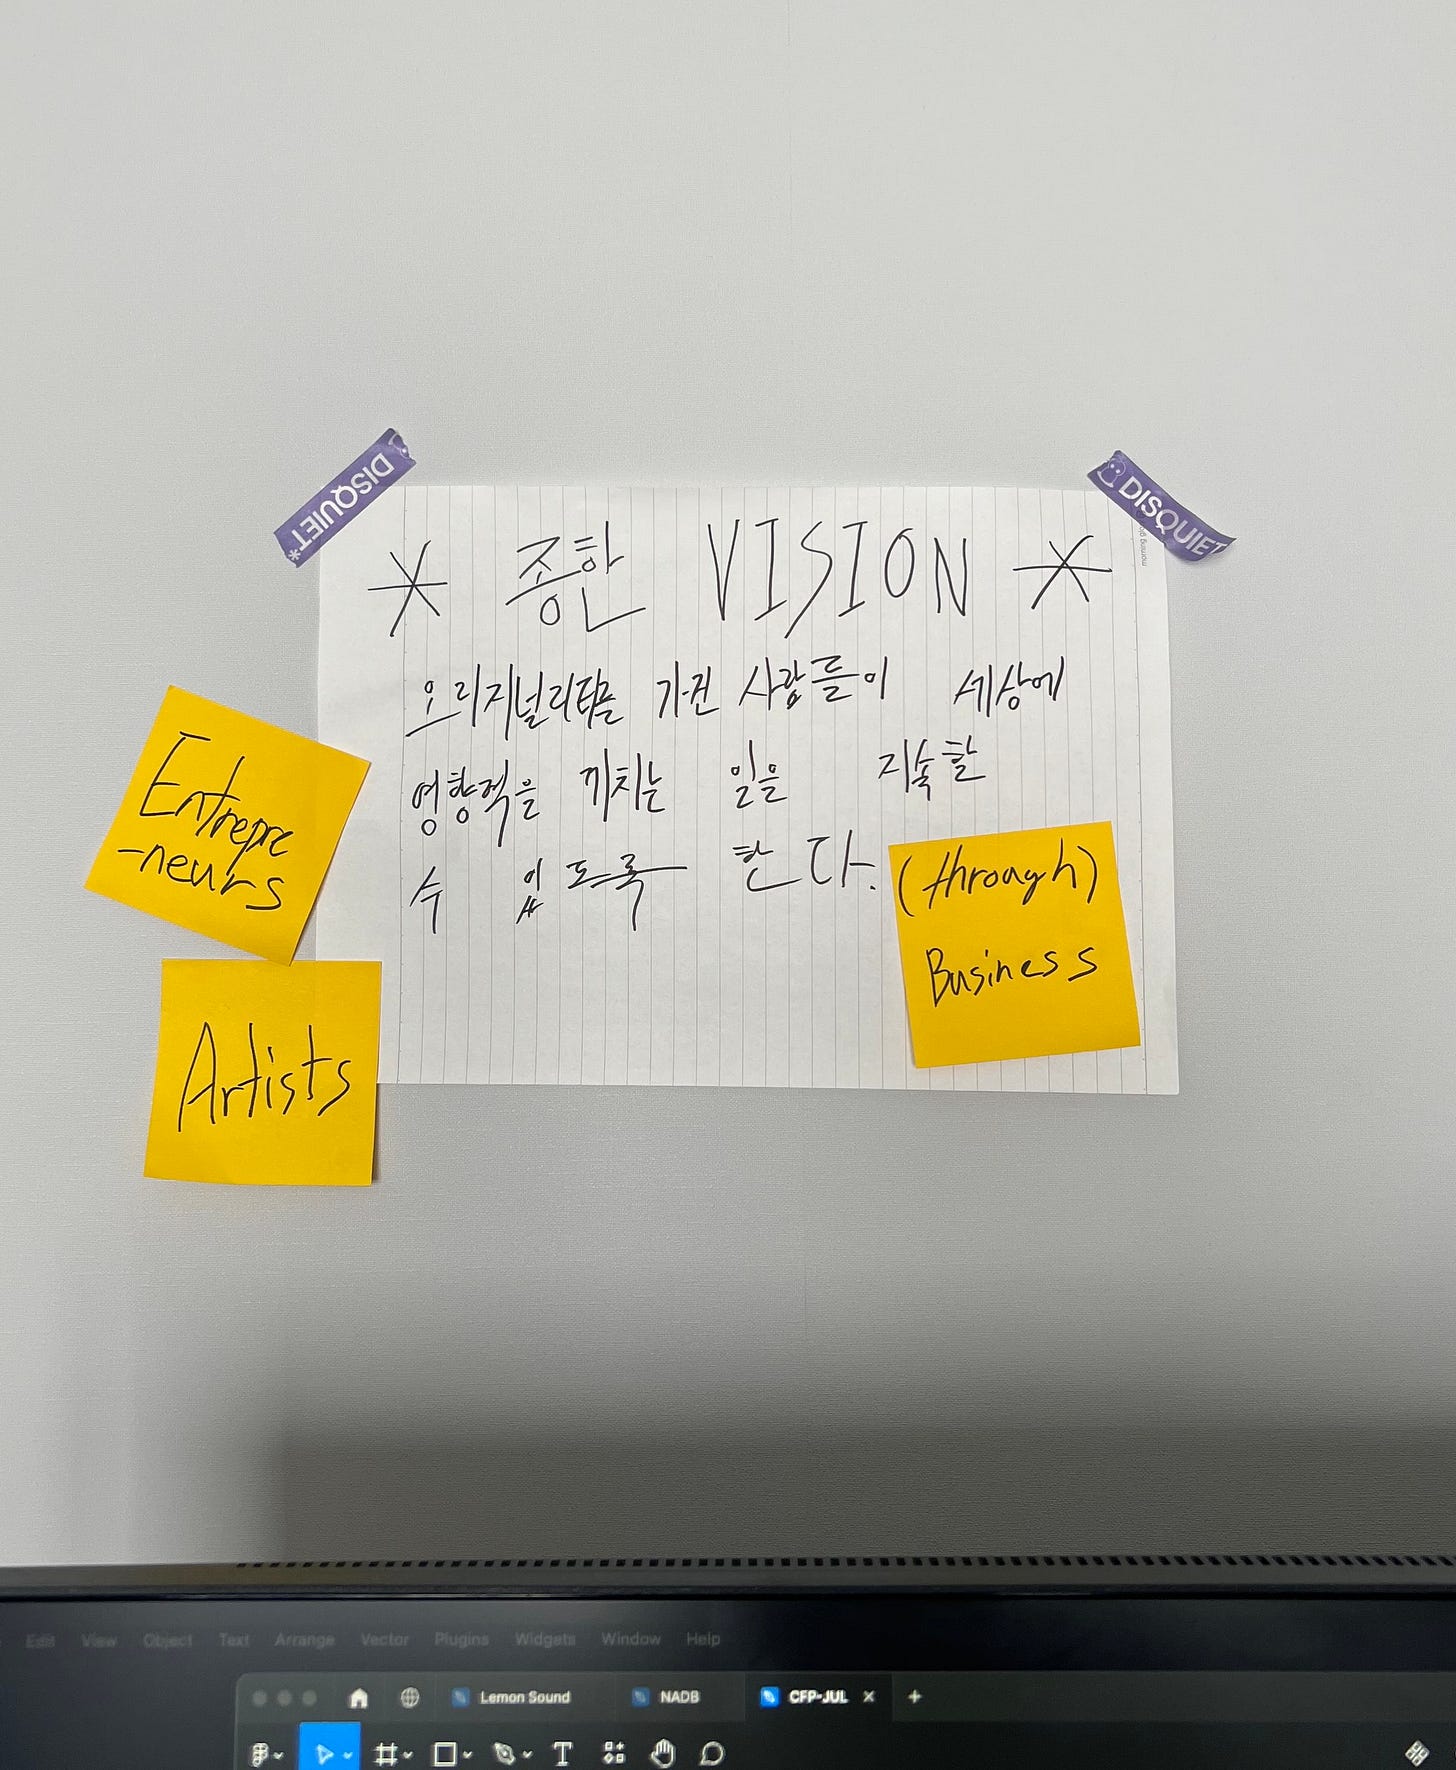 DISQUIET*
DISQUIET
* 종한 VISION *
오리지널리티를 가진 사람들이 세상에
영향력을 끼치는 일을 지속할
수 있도록 한다.
(through)
Business
Entrepre
-neurs
Artists
Edit View Object Text Arrange Vector Plugins Widgets Window Help
Lemon Sound NADB CFP-JUL × +
T